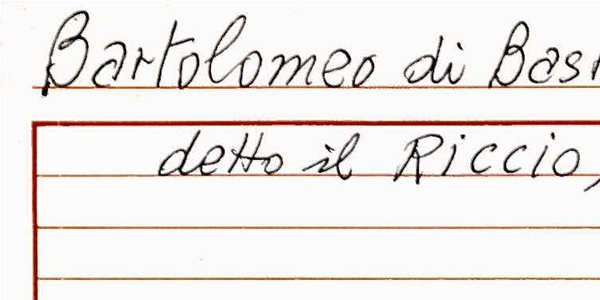 Bartolomeo di Bas
detto il Riccio,